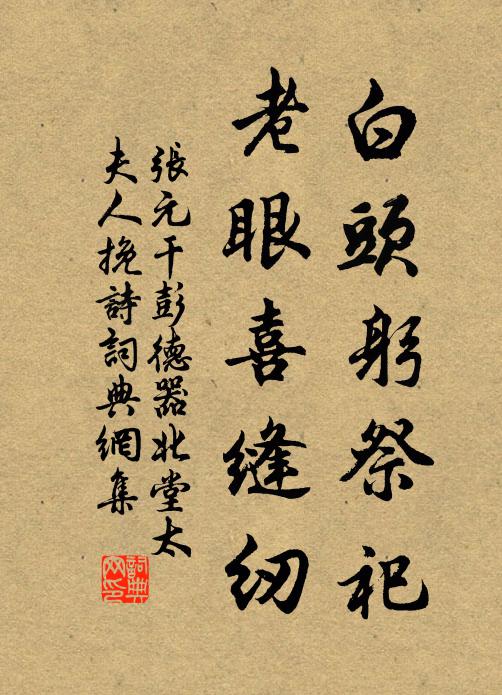 白頭躬祭祀
老眼喜縫紉
張元干彭德器北堂太
夫人挽詩詞典網集
詞典
网印